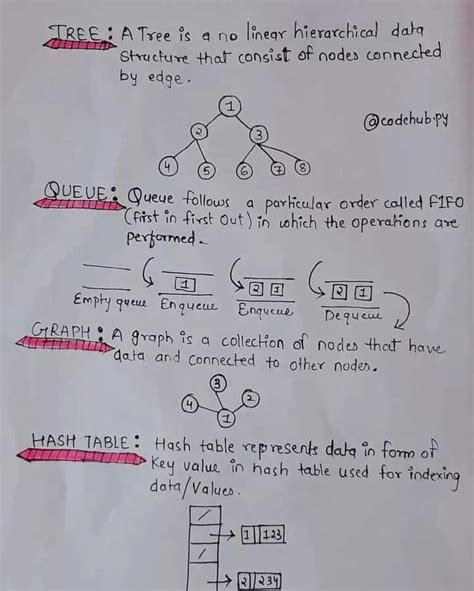 TREE: A Tree is a no linear hierarchical data
Structure that consist of nodes connected
by edge.
1
@codehub.py
2 3
4 5 6 7 8
QUEUE: Queue follows a particular order called FIFO
(fist in first Out) in which the operations are
performed.
1 2 1 2 1
Empty queue Enqueue Enqueue Dequeue
GRAPH: A graph is a collection of nodes that have
data and connected to other nodes.
3
4 2
1
HASH TABLE: Hash table represents data in form of
Key value in hash table used for indexing
data/Values.
1 123
2 234